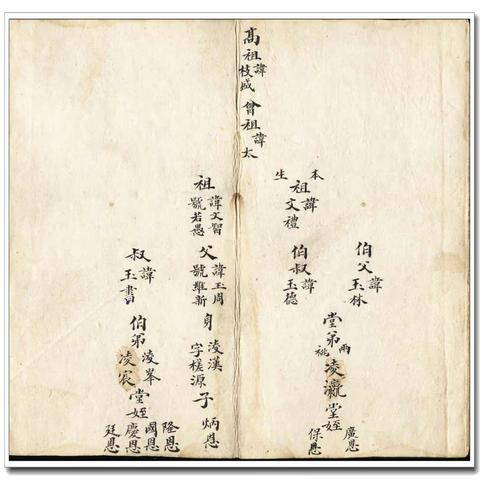 高祖諱枝盛
曾祖諱太
本生祖諱文禮
伯父諱玉林
伯叔諱玉德
堂弟兩祧凌瀛
堂姪廣恩
保恩
祖諱文智
號若愚
父諱玉周
號維新
身凌漢
字槎源
子炳恩
叔諱玉書
伯弟凌峯
凌宸
堂姪隆恩
國恩
慶恩
廷恩